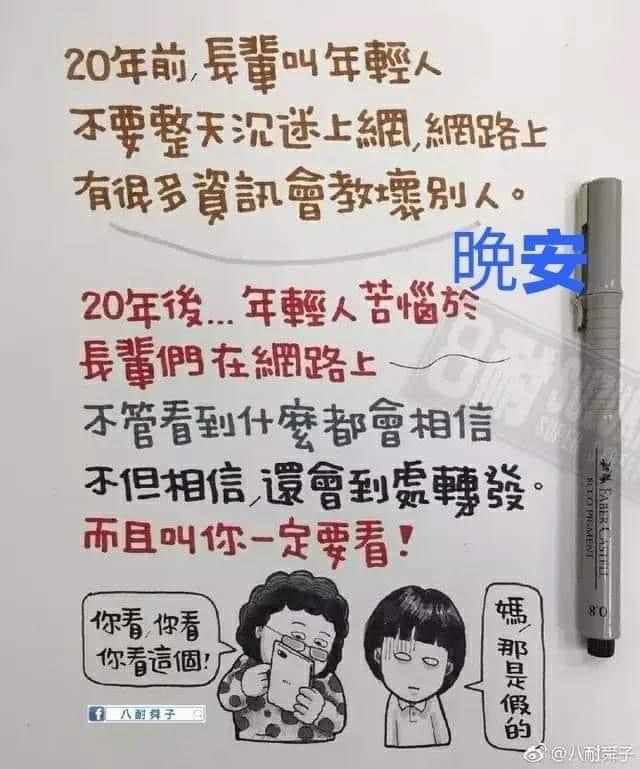 20年前,長輩叫年輕人
不要整天沉迷上網,網路上
有很多資訊會教壞別人。
晚安
20年後...年輕人苦惱於
長輩們在網路上
不管看到什麼都會相信
不但相信,還會到處轉發。
而且叫你一定要看!
你看,你看
你看這個!
媽,那是假的
八耐舜子
8耐SUN
FABER-CASTELL
ECCO PIGMENT
0.8
@八耐舜子